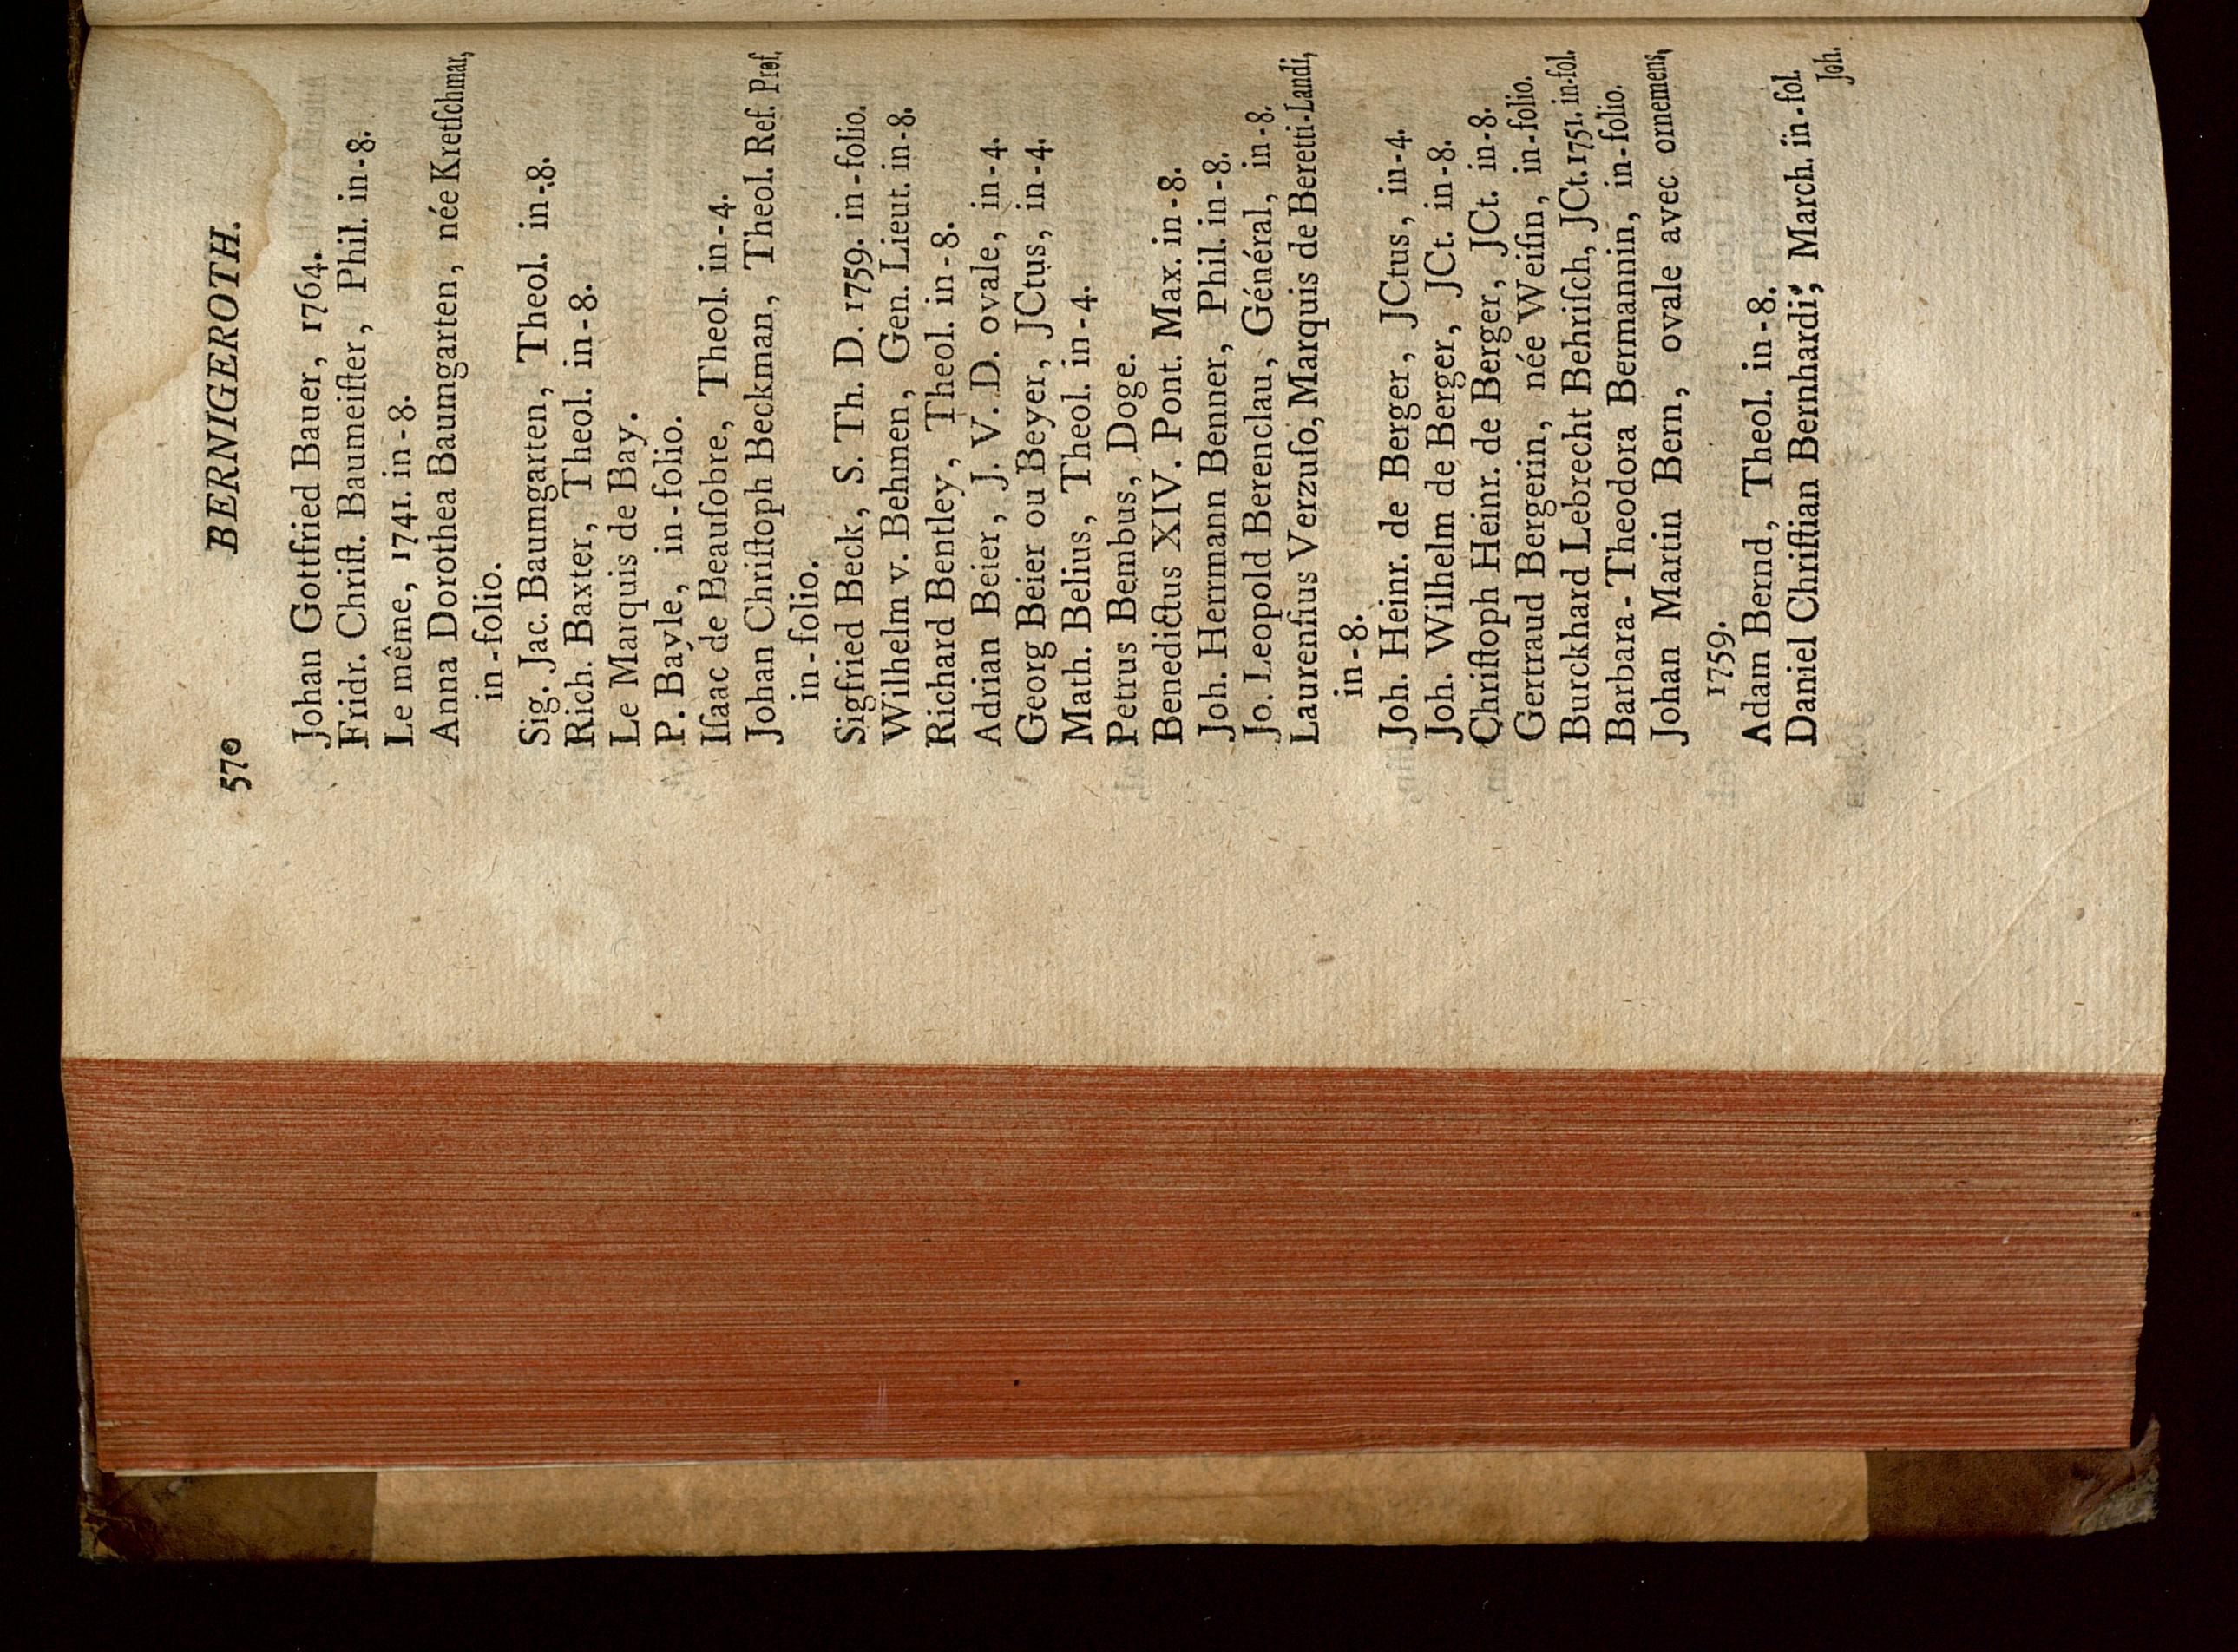 570 BERNIGEROTH.
Johan Gottfried Bauer, 1764.
Fridr. Chriſt. Baumeiſter, Phil. in-8.
Le même, 1741. in-8.
Anna Dorothea Baumgarten, née Kretſchmar,
in-folio.
Sig. Jac. Baumgarten, Theol. in-8.
Rich. Baxter, Theol. in-8.
Le Marquis de Bay.
P. Bayle, in-folio.
Iſaac de Beauſobre, Theol. in-4.
Johan Chriſtoph Beckman, Theol. Ref. Prof.
in-folio.
Sigfried Beck, S. Th. D. 1759. in-folio.
Wilhelm v. Behmen, Gen. Lieut. in-8.
Richard Bentley, Theol. in-8.
Adrian Beier, J. V. D. ovale, in-4.
Georg Beier ou Beyer, JCtus, in-4.
Math. Belius, Theol. in-4.
Petrus Bembus, Doge.
Benedictus XIV. Pont. Max. in-8.
Joh. Herrmann Benner, Phil. in-8.
Jo. Leopold Berenclau, Général, in-8.
Laurenſius Verzuſo, Marquis de Beretti-Landi,
in-8.
Joh. Heinr. de Berger, JCtus, in-4.
Joh. Wilhelm de Berger, JCt. in-8.
Chriſtoph Heinr. de Berger, JCt. in-8.
Gertraud Bergerin, née Weiſin, in-folio.
Burckhard Lebrecht Behriſch, JCt. 1751. in-fol.
Barbara-Theodora Bermannin, in-folio.
Johan Martin Bern, ovale avec ornemens,
1759.
Adam Bernd, Theol. in-8.
Daniel Chriſtian Bernhardi, March. in-fol.
Joh.